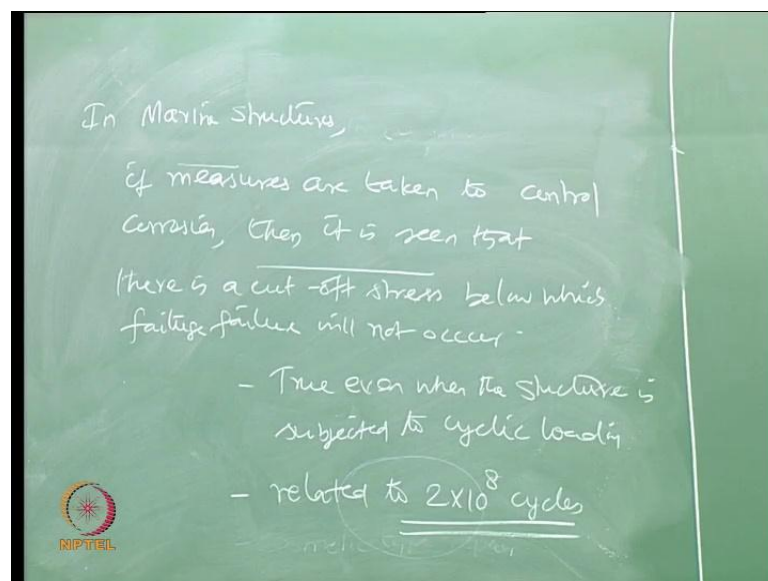 In Marine structures,
if measures are taken to control
corrosion, then it is seen that
there is a cut-off stress below which
fatigue failure will not occur.
- True even when the structure is
subjected to cyclic loading
- related to 2X10⁸ cycles
NPTEL